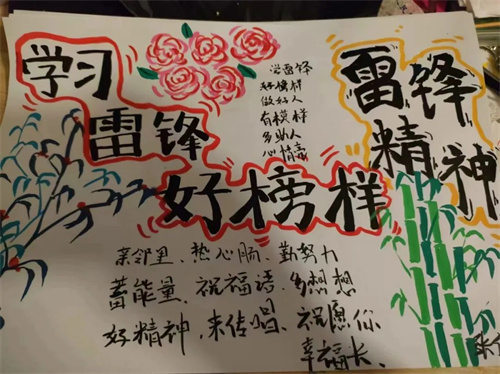 学习
雷锋
好榜样
学雷锋
好榜样
做好人
有模样
多助人
心情喜
雷锋
精神
亲邻里、热心肠、勤努力
蓄能量、祝福语、多想想
好精神、来传唱、祝愿你
幸福长、